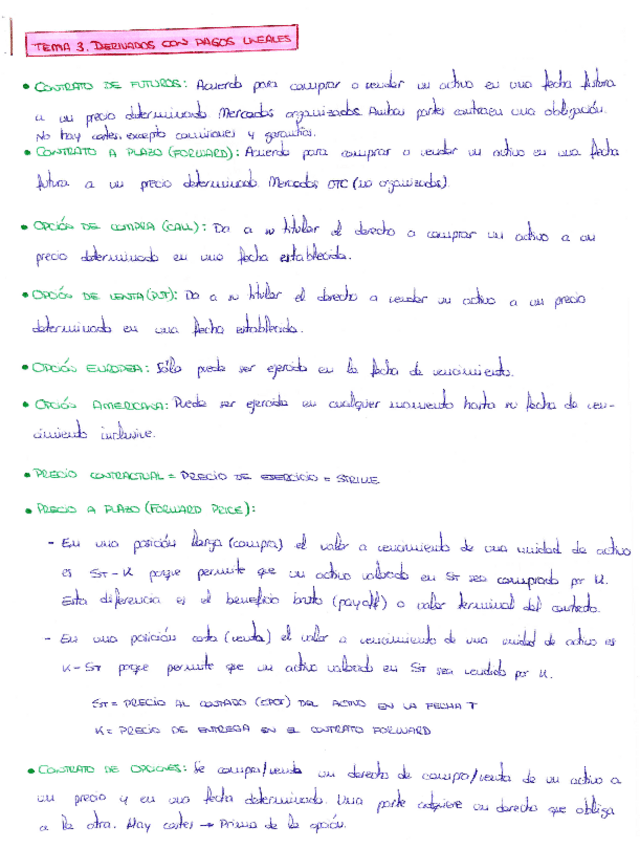 TEMA 3. DERIVADOS CON PAGOS LINEALES
• CONTRATO DE FUTUROS: Acuerdo para comprar o vender un activo en una fecha futura
a un precio determinado. Mercados organizados. Ambas partes contraen una obligación.
No hay costes, excepto comisiones y garantías.
• CONTRATO A PLAZO (FORWARD): Acuerdo para comprar o vender un activo en una fecha
futura a un precio determinado. Mercados OTC (no organizados).
• OPCIÓN DE COMPRA (CALL): Da a su titular el derecho a comprar un activo a un
precio determinado en una fecha establecida.
• OPCIÓN DE VENTA (PUT): Da a su titular el derecho a vender un activo a un precio
determinado en una fecha establecida.
• OPCIÓN EUROPEA: Sólo puede ser ejercida en la fecha de vencimiento.
• OPCIÓN AMERICANA: Puede ser ejercida en cualquier momento hasta su fecha de ven-
cimiento inclusive.
• PRECIO CONTRACTUAL = PRECIO DE EJERCICIO = STRIKE
• PRECIO A PLAZO (FORWARD PRICE):
- En una posición larga (compra) el valor a vencimiento de una unidad de activo
es ST - K porque permite que un activo valorado en ST sea comprado por K.
Esta diferencia es el beneficio bruto (payoff) o valor terminal del contrato.
- En una posición corta (venta) el valor a vencimiento de una unidad de activo es
K - ST porque permite que un activo valorado en ST sea vendido por K.
ST = PRECIO AL CONTADO (SPOT) DEL ACTIVO EN LA FECHA T
K = PRECIO DE ENTREGA EN EL CONTRATO FORWARD
• CONTRATO DE OPCIONES: Se compra/venta un derecho de compra/venta de un activo a
un precio y en una fecha determinada. Una parte adquiere un derecho que obliga
a la otra. Hay costes → Prima de la opción.